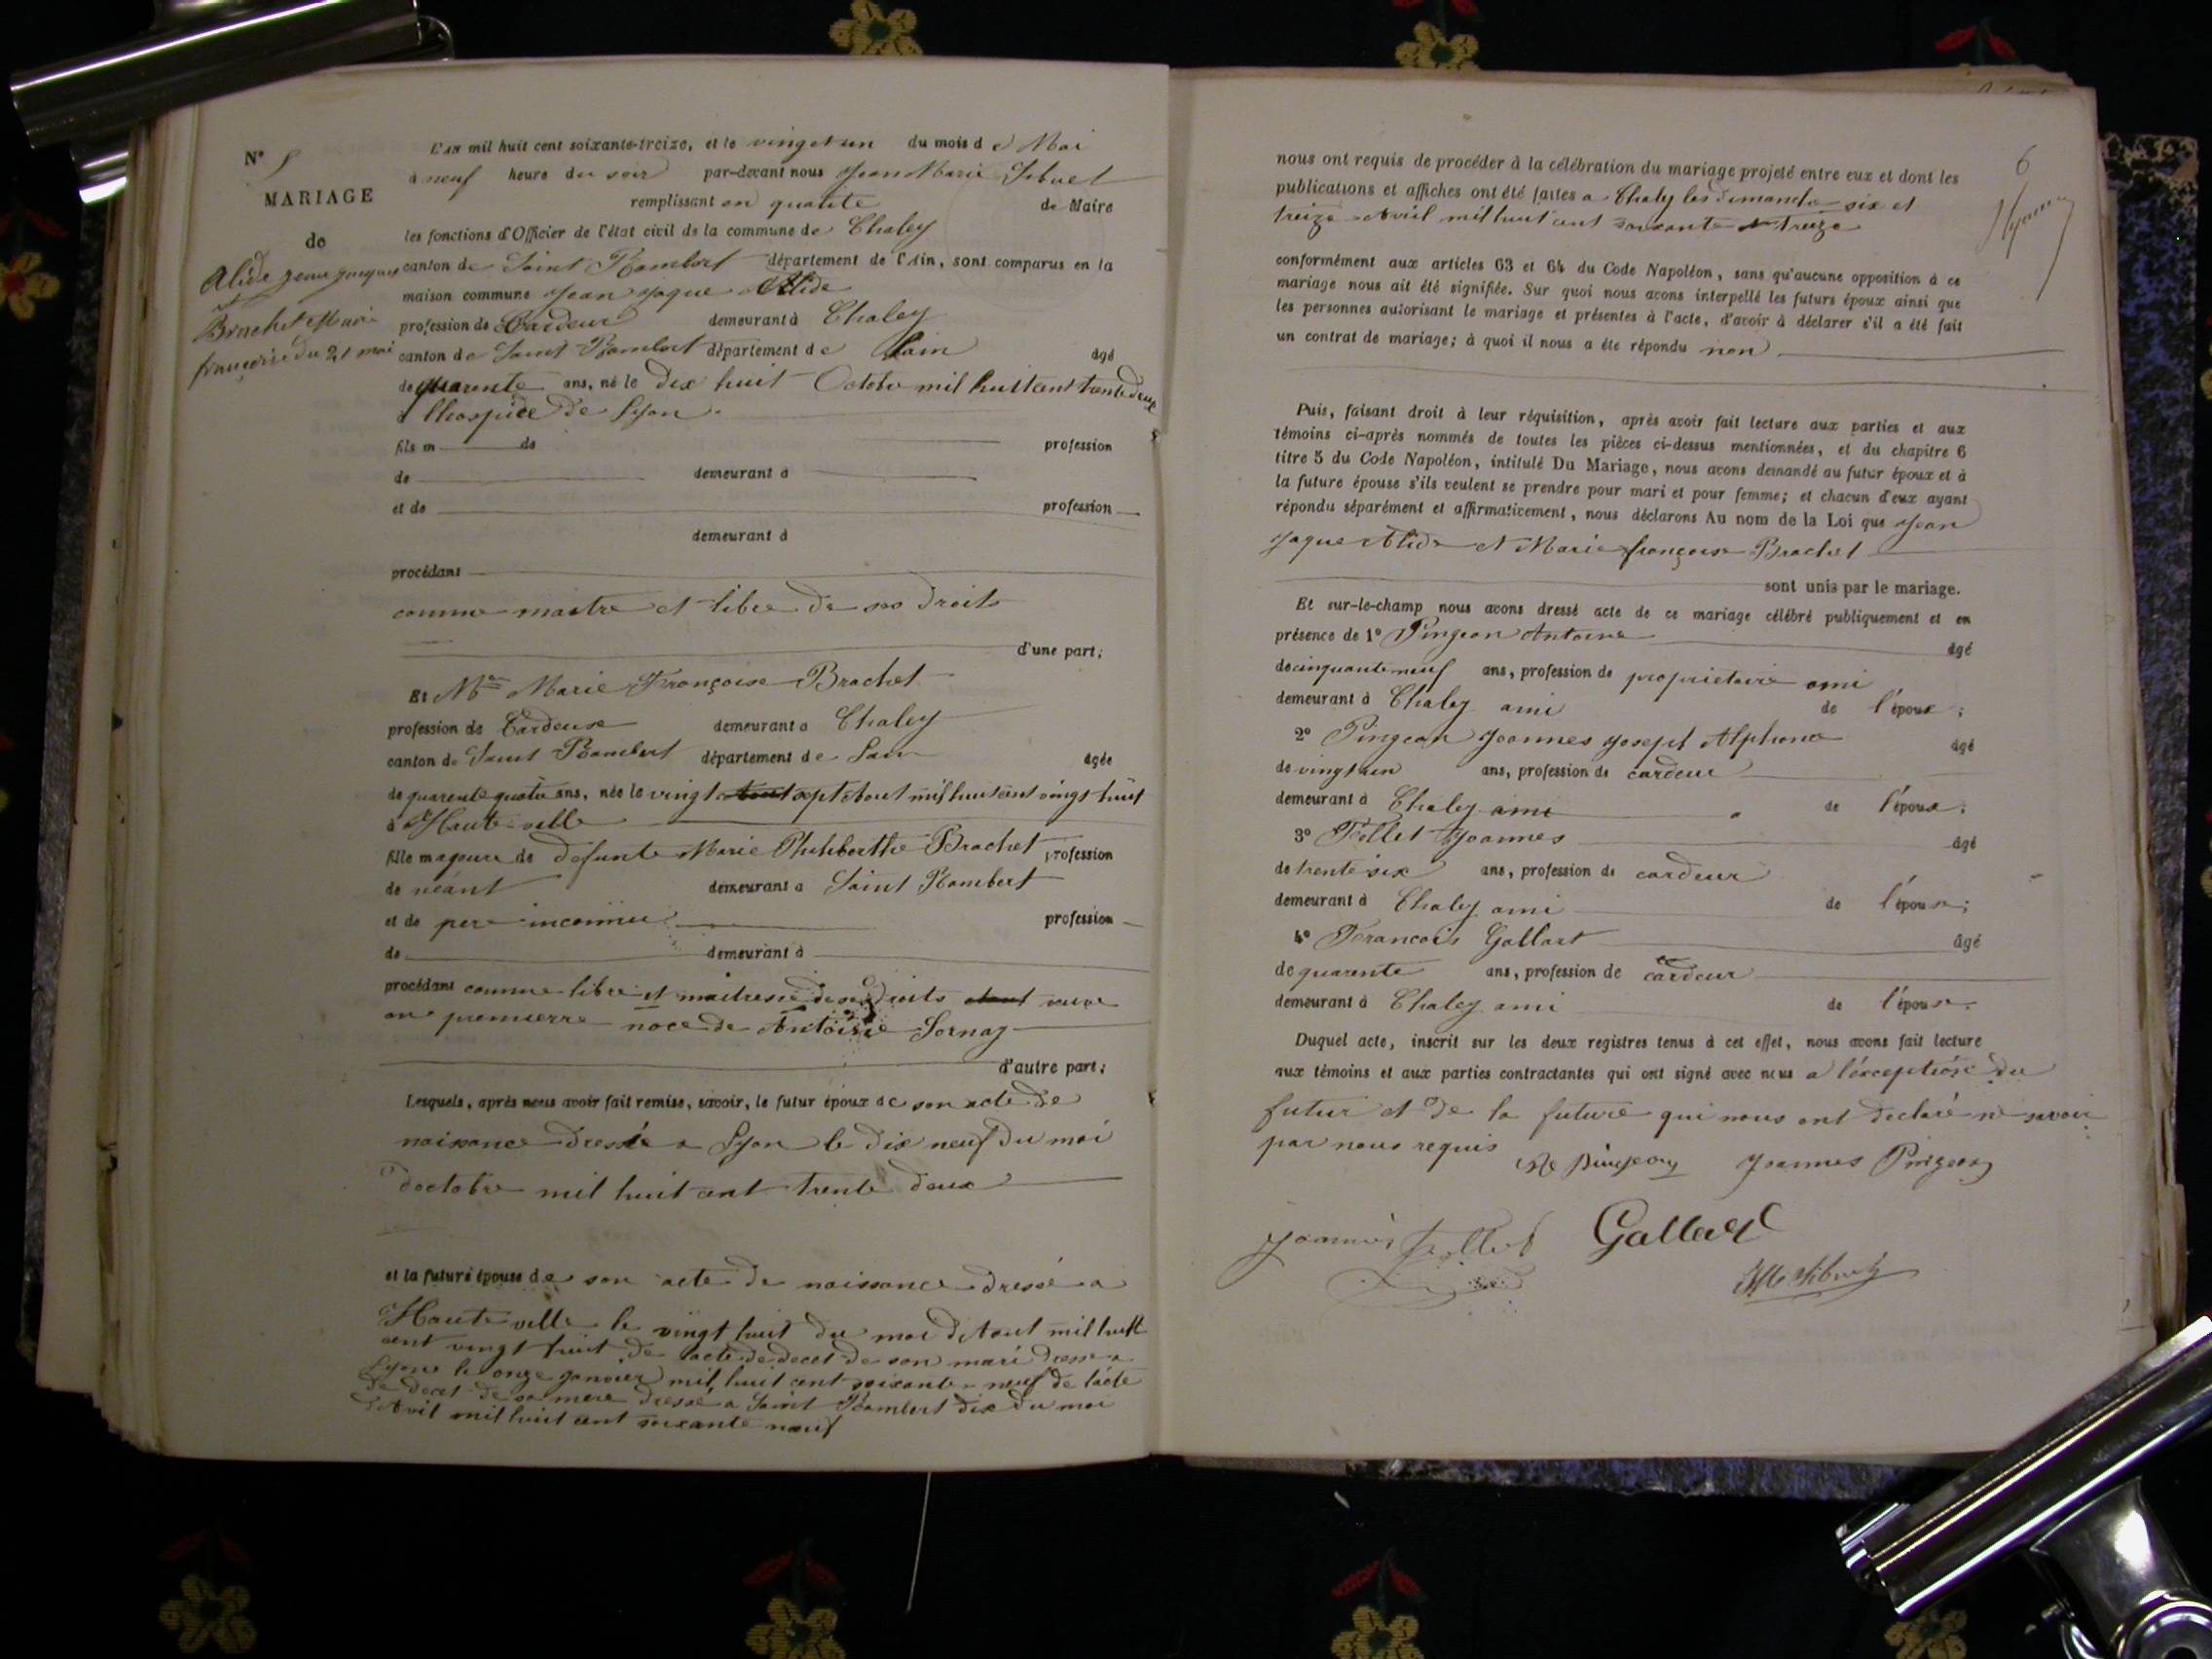 N° 5
MARIAGE
de
Alide jean jacques
et
Brachet Marie
françoise du 21 mai
L'AN mil huit cent soixante-treize, et le vingt et un du mois de Mai
à neuf heure du soir par-devant nous Jean Marie Sibuet
remplissant en qualité de Maire
les fonctions d'Officier de l'état civil de la commune de Chaley
canton de Saint Rambert département de l'Ain, sont comparus en la
maison commune Jean Jaque Alide
profession de Cardeur demeurant à Chaley
canton de Saint Rambert département de Lain âgé
de quarente ans, né le dix huit Octobre mil huit cent trente deux
à lhospice de Lyon
fils m de profession
de demeurant à
et de profession
demeurant à
procédant
comme maitre et libre de ses droits
d'une part;
Et Me Marie Françoise Brachet
profession de Cardeuse demeurant à Chaley
canton de Saint Rambert département de Lain âgée
de quarente quatre ans, née le vingt Aout sept Aout mil huit cent vingt huit
à Haute-ville
fille mageure de défunte Marie Philiberthe Brachet profession
de néant demeurant à Saint Rambert
et de pere inconnu profession
de demeurant à
procédant comme libre et maitresse de ses droits etant veuve
en premierre noce de Antoine Sornay
d'autre part;
Lesquels, après nous avoir fait remise, savoir, le futur époux de son acte de
naissance dressé a Lyon le dix neuf du moi
doctobre mil huit cent trente deux
et la future épouse de son acte de naissance dressé a
Haute ville le vingt huit du moi dAout mil huit
cent vingt huit de lacte de decet de son mari dressé a
Lyon le onze janvier mil huit cent soixante neuf de lácte
de decet de sa mere dressé a Saint Rambert dix du moi
dAvril mil huit cent soixante neuf
6
nous ont requis de procéder à la célébration du mariage projeté entre eux et dont les
publications et affiches ont été faites a Chaley les dimanche six et
treize Avril mil huit cent soixante et treize
conformément aux articles 63 et 64 du Code Napoléon, sans qu'aucune opposition à ce
mariage nous ait été signifiée. Sur quoi nous avons interpellé les futurs époux ainsi que
les personnes autorisant le mariage et présentes à l'acte, d'avoir à déclarer s'il a été fait
un contrat de mariage; à quoi il nous a été répondu non
Puis, faisant droit à leur réquisition, après avoir fait lecture aux parties et aux
témoins ci-après nommés de toutes les pièces ci-dessus mentionnées, et du chapitre 6
titre 5 du Code Napoléon, intitulé Du Mariage, nous avons demandé au futur époux et à
la future épouse s'ils veulent se prendre pour mari et pour femme; et chacun d'eux ayant
répondu séparément et affirmativement, nous déclarons Au nom de la Loi que Jean
Jaque Alide et Marie françoise Brachet
sont unis par le mariage.
Et sur-le-champ nous avons dressé acte de ce mariage célébré publiquement et en
présence de 1° Pingeon Antoine âgé
de cinquante neuf ans, profession de proprietaire ami
demeurant à Chaley ami de l'époux;
2° Pingeon Joannes Joseph Alphonse âgé
de vingt un ans, profession de cardeur
demeurant à Chaley ami de l'époux;
3° Pollet Joannes âgé
de trente six ans, profession de cardeur
demeurant à Chaley ami de l'épouse;
4° Francois Gallart âgé
de quarente ans, profession de cardeur
demeurant à Chaley ami de l'épouse.
Duquel acte, inscrit sur les deux registres tenus à cet effet, nous avons fait lecture
aux témoins et aux parties contractantes qui ont signé avec nous a l'éxception du
futur et de la future qui nous ont declaré ne savoir
par nous requis
Pingeon Joannes Pingeon
Joannès
JM Sibuet